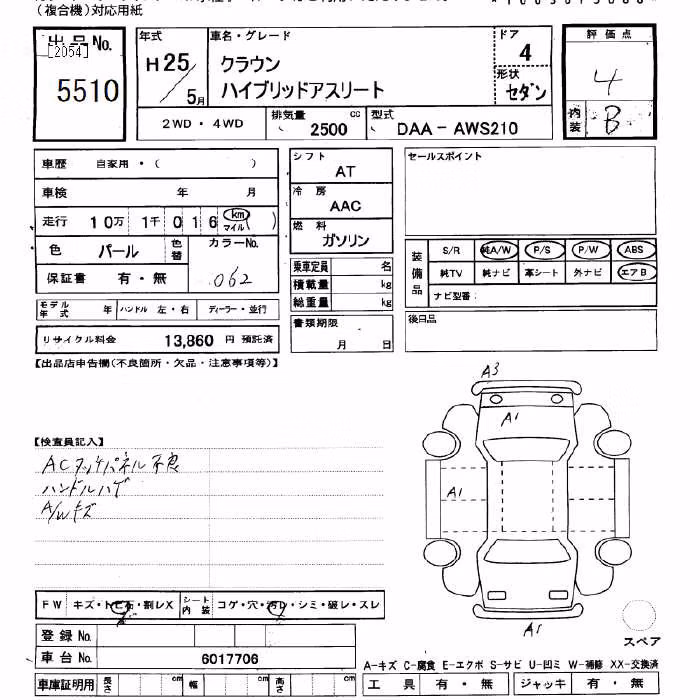 (複合機)対応用紙
出品No.
[2054]
5510
年式
H25/5月
車名・グレード
クラウン
ハイブリッドアスリート
ドア
4
形状
セダン
2WD・4WD
排気量 cc
2500
型式
DAA-AWS210
評価点
4
内装
B
車歴 自家用・( )
車検 年 月
走行 10万 1千 016 km マイル ( )
色 パール 色替 カラーNo.
保証書 有・無 062
モデル年式 年 ハンドル 左・右 ディーラー・並行
リサイクル料金 13,860 円 預託済
シフト
AT
冷房
AAC
燃料
ガソリン
乗車定員 名
積載量 kg
総重量 kg
書類期限
月 日
セールスポイント
装備品
S/R 純A/W P/S P/W ABS
純TV 純ナビ 革シート 外ナビ エアB
ナビ型番:
後日品
【出品店申告欄(不良箇所・欠品・注意事項等)】
【検査員記入】
ACタッチパネル不良
ハンドルハゲ
A/Wキズ
A3
A1
A1
A1
スペア
FW キズ・トビ石・割レX シート内装 コゲ・穴・汚レ・シミ・破レ・スレ
登録No.
車台No. 6017706
車庫証明用 長さ cm 幅 cm 高さ cm
A-キズ C-腐食 E-エクボ S-サビ U-凹ミ W-補修 XX-交換済
工具 有・無 ジャッキ 有・無